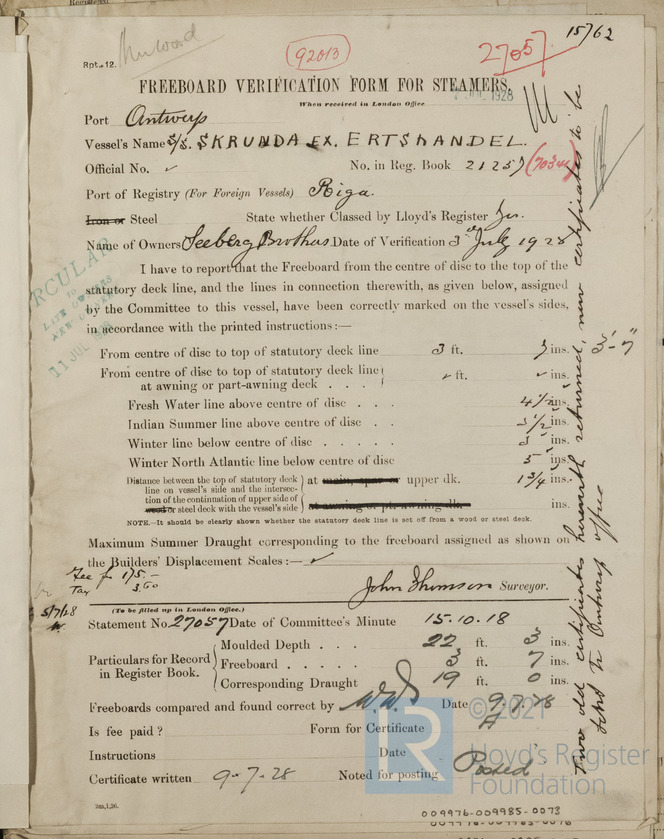 Registered
15762
Rpt. 12.
92013
27057
FREEBOARD VERIFICATION FORM FOR STEAMERS.
When received in London Office
JUL 1928
Port Antwerp
Vessel's Name S/S. SKRUNDA EX. ERTSHANDEL.
Official No. ✓ No. in Reg. Book 21257 (70344)
Port of Registry (For Foreign Vessels) Riga.
Iron or Steel State whether Classed by Lloyd's Register Yes.
Name of Owners Seeberg Brothers Date of Verification 3rd July 1928
I have to report that the Freeboard from the centre of disc to the top of the
statutory deck line, and the lines in connection therewith, as given below, assigned
by the Committee to this vessel, have been correctly marked on the vessel's sides,
in accordance with the printed instructions:—
From centre of disc to top of statutory deck line 3 ft. 7 ins. 3'-7"
From centre of disc to top of statutory deck line
at awning or part-awning deck . . . ✓ ft. ✓ ins.
Fresh Water line above centre of disc . . . 4 1/2 ins.
Indian Summer line above centre of disc . . 3 1/2 ins.
Winter line below centre of disc . . . . . 3 ins.
Winter North Atlantic line below centre of disc 5 ins.
Distance between the top of statutory deck
line on vessel's side and the intersec-
tion of the continuation of upper side of
wood or steel deck with the vessel's side
at main, spar or upper dk. 1 3/4 ins.
at awning or pt. awning dk. ins.
NOTE.—It should be clearly shown whether the statutory deck line is set off from a wood or steel deck.
Maximum Summer Draught corresponding to the freeboard assigned as shown on
the Builders' Displacement Scales:— ✓
Fee fr 175.-
Tax 3.50
John Thomson Surveyor.
5/7/28
(To be filled up in London Office.)
Statement No. 27057 Date of Committee's Minute 15.10.18
Particulars for Record
in Register Book.
Moulded Depth . . . 22 ft. 3 ins.
Freeboard . . . . . 3 ft. 7 ins.
Corresponding Draught 19 ft. 0 ins.
Freeboards compared and found correct by Date 9.7.28
Is fee paid? Form for Certificate A
Instructions Date
Certificate written 9-7-28 Noted for posting Posted
2m,1,26.
Two old certificates herewith returned, new certificates to be
sent to Antwerp office
CIRCULAR
11 JUL 1928
© 2021
Lloyd's Register
Foundation
009976-009985-0073